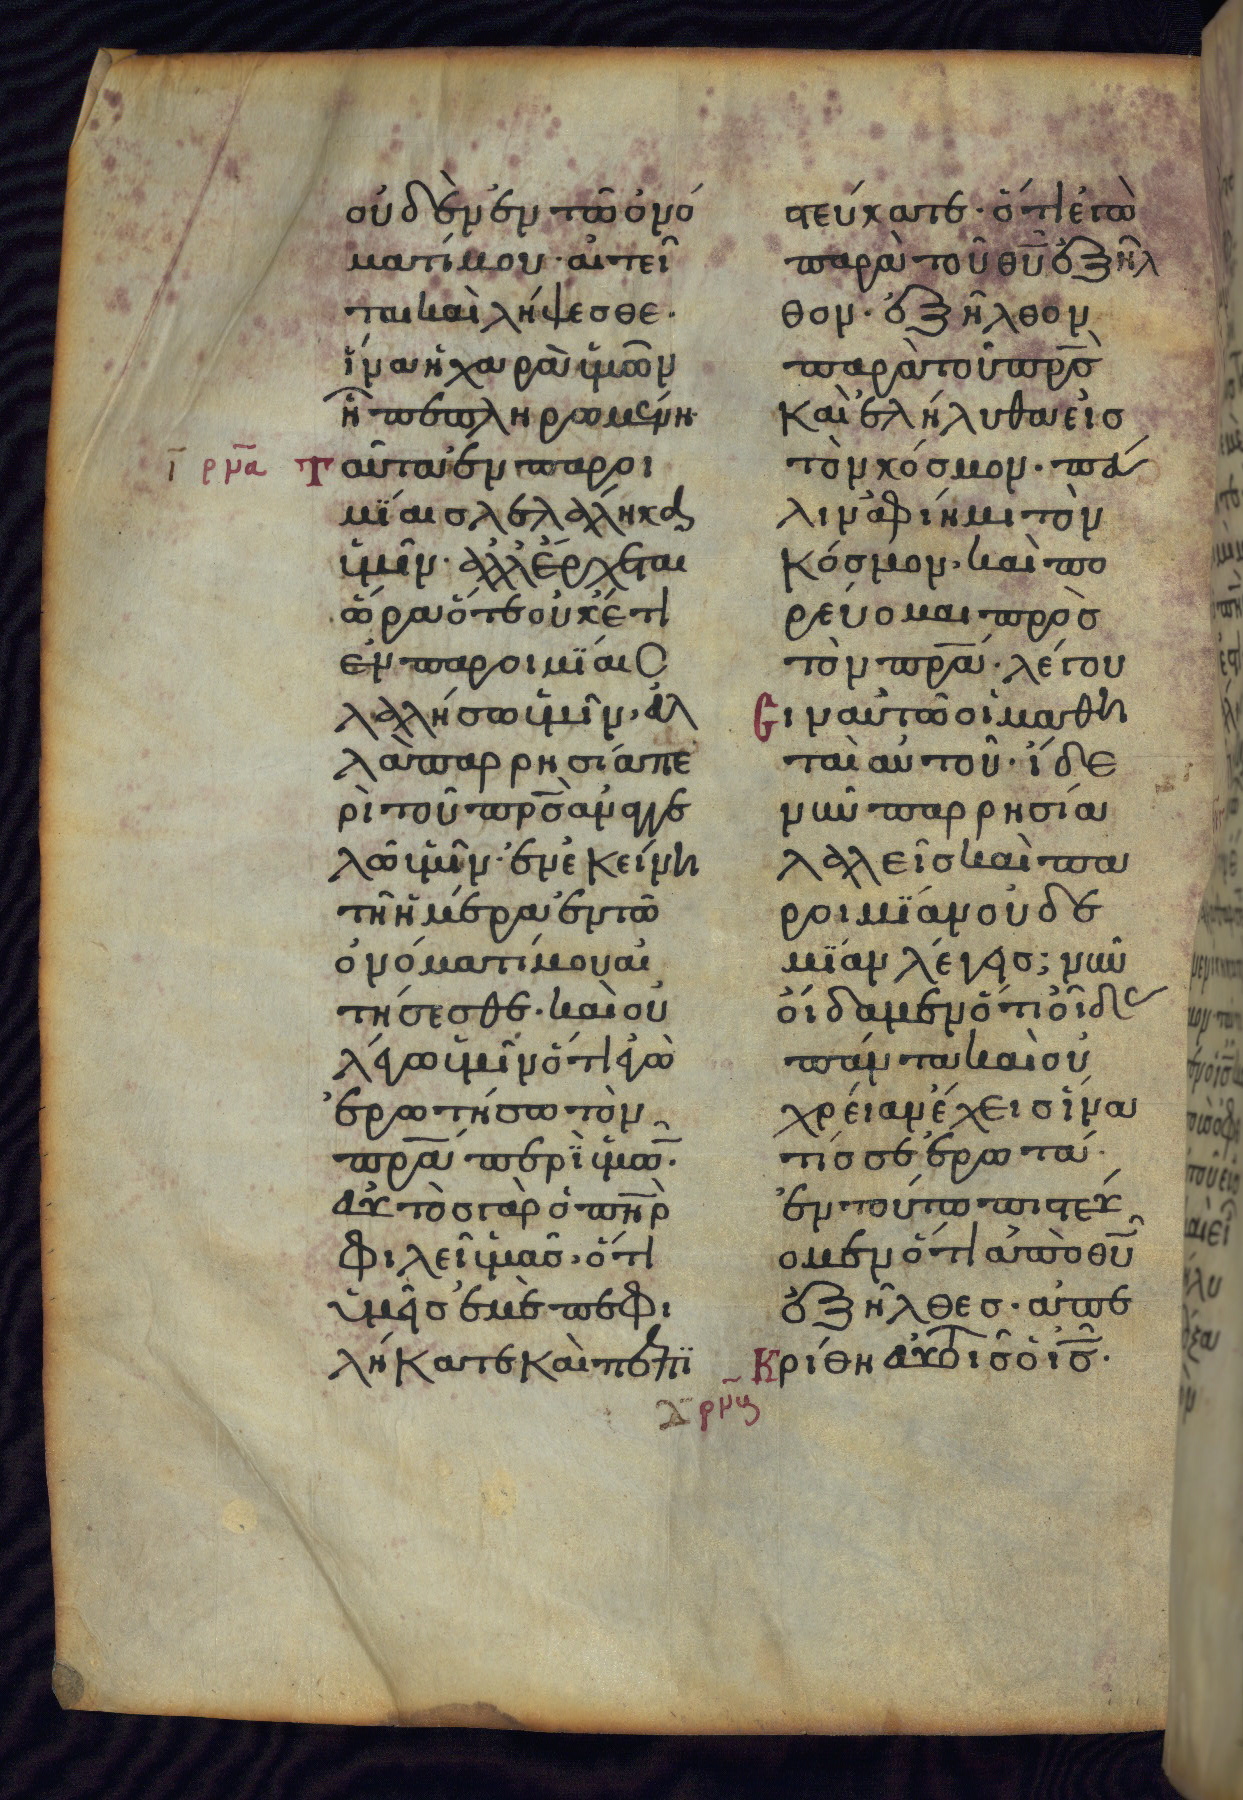 οὐδὲν ἐν τῶ ὀνό
ματί μου· αἰτεῖ
ται καὶ λήψεσθε·
ἵνα ἡ χαρὰ ὑμῶν
ῆ πεπληρωμένη·
ῑ ρμ̄α Ταῦτα ἐν παροι
μϊαισ λελάληκα
ὑμῖν· ἀλλ' ἔρχεται
ὥρα ὅτε οὐκέτι
ἐν παροιμϊαις
λαλήσω ὑμῖν, ἀλ
λὰ παρρησία πε
ρὶ τοῦ πρ̅σ̅ ἀναγγε
λῶ ὑμῖν· ἐν ἐκείνη
τῆ ἡμέρα ἐν τῶ
ὀνόματί μου αἰ
τήσεσθε· καὶ οὐ
λέγω ὑμῖν ὅτι ἐγὼ
ἐρωτήσω τὸν
πρ̅α̅ περὶ ὑμῶ̅·
αὐτὸσ γὰρ ὁ πη̅ρ̅
φιλεῖ ὑμᾶσ, ὅτι
ὑμεῖσ ἐμὲ πεφι
λήκατε καὶ πεπϊ
στεύκατε· ὅτι ἐγὼ
παρὰ τοῦ θυ̅ ἐξῆλ
θον· ἐξῆλθον
παρὰ τοῦ πρ̅σ̅
καὶ ἐλήλυθα εἰσ
τὸν κόσμον· πά
λιν ἀφίημι τὸν
κόσμον, καὶ πο
ρεύομαι πρὸσ
τὸν πρ̅α̅· λέγου
Σιν αὐτῶ οἱ μαθη
ταὶ αὐτοῦ· ἴδε
νῦν παρρησία
λαλεῖσ καὶ πα
ροιμϊαν οὐδε
μϊαν λέγεισ; νῦν
οἴδαμεν ὅτι οἶδασ
πάντα καὶ οὐ
χρείαν ἔχεισ ἵνα
τίσ σε ἐρωτᾶ·
ἐν τούτω πιστεύ
ομεν ὅτι ἀπὸ θυ̅
ἐξῆλθεσ· ἀπε
Κρίθη αὐτοῖσ ὁ ι̅σ̅·
δ̄ ρμ̄ϛ